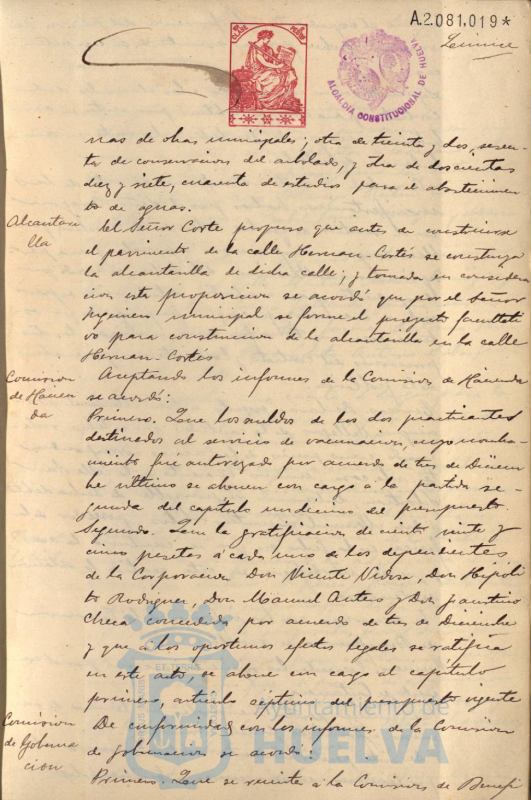 A.2.081,019*
ALCALDIA CONSTITUCIONAL DE HUELVA
nas de obras municipales; otra de treinta y dos, sesen-
ta de conservacion del arbolado, y otra de doscientas
diez y siete, cuarenta de estudios para el abastecimien-
to de aguas.
Alcantari
lla
El Señor Corte propuso que antes de construirse
el pavimento de la calle Hernan-Cortés se construya
la alcantarilla de dicha calle; y tomada en considera
cion esta proposicion se acordó que por el Señor
Ingeniero municipal se forme el proyecto facultati
vo para construccion de la alcantarilla en la calle
Hernan-Cortés
Comision
de Hacien
da
Aceptando los informes de la Comision de Hacienda
se acordó:
Primero. Que los sueldos de los dos practicantes
destinados al servicio de vacunacion, cuyo nombra-
miento fué autorizado por acuerdo de tres de Diciem
bre último se abonen con cargo á la partida se-
gunda del capítulo undécimo del presupuesto.
Segundo. Que la gratificacion de ciento veinte y
cinco pesetas á cada uno de los dependientes
de la Corporacion Don Vicente Don Hipóli
to Rodriguez, Don Manuel Antero y Don Faustino
Checa concedida por acuerdo de tres de Diciembre
y que á los oportunos efectos legales se ratifica
en este acto, se abone con cargo al capítulo
primero, artículo séptimo del presupuesto vigente
Comision
de Goberna
cion
De conformidad con los informes de la Comision
de gobernacion se acordó:
Primero. Que se remita á la Comision de Benefi
Ayuntamiento de
HUELVA